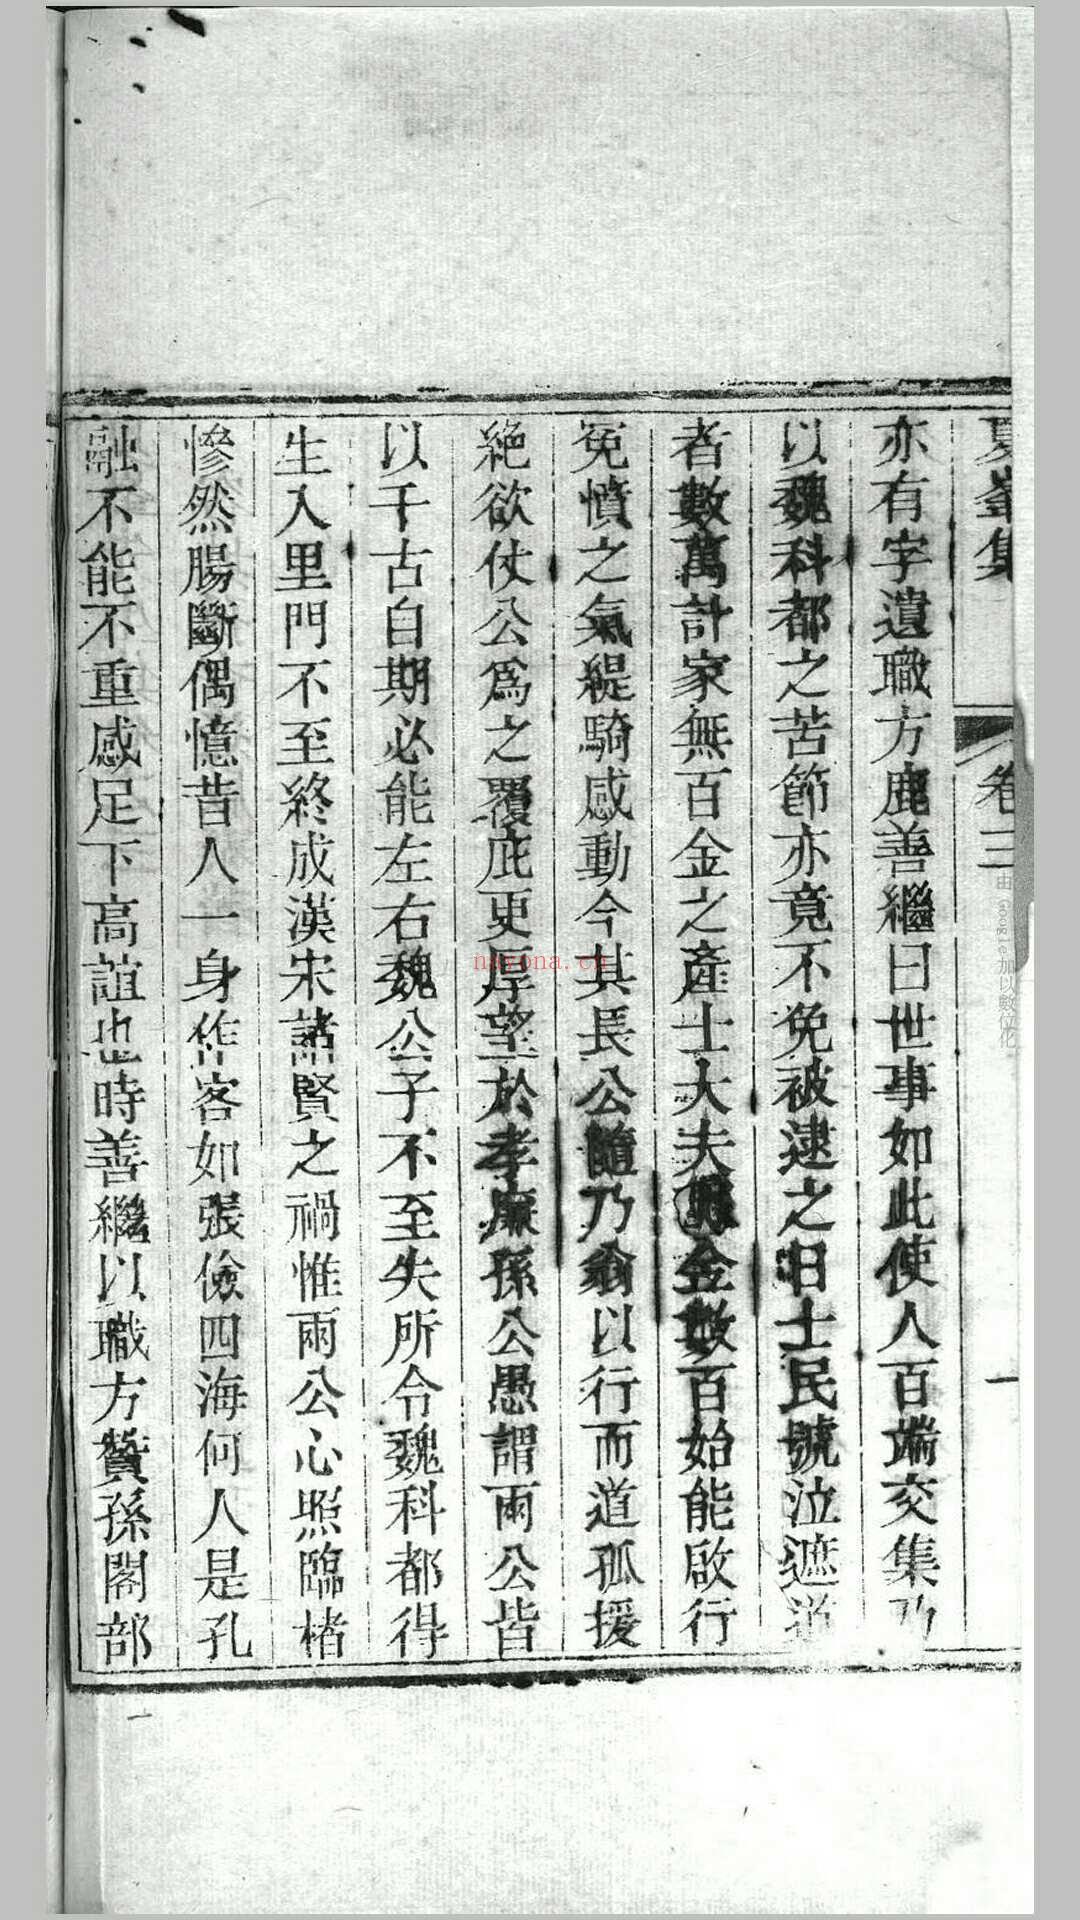 夏峯集
卷三
一
亦有字遺職方鹿善繼曰世事如此使人百端交集乃
以魏科都之苦節亦竟不免被逮之日士民號泣遮道
者數萬計家無百金之產士大夫醵金數百始能啟行
冤憤之氣緹騎感動今其長公隨乃翁以行而道孤援
絕欲仗公爲之覆庇更厚望於孝廉孫公愚謂兩公皆
以千古自期必能左右魏公子不至失所令魏科都得
生入里門不至終成漢宋諸賢之禍惟兩公心照臨楮
慘然腸斷偶憶昔人一身作客如張儉四海何人是孔
融不能不重感足下高誼也時善繼以職方贊孫閣部
由 Google 加以數位化
nayona.cn